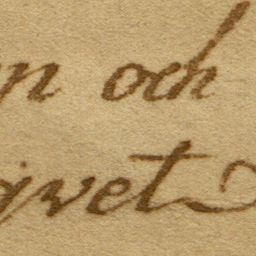 n och
gvet